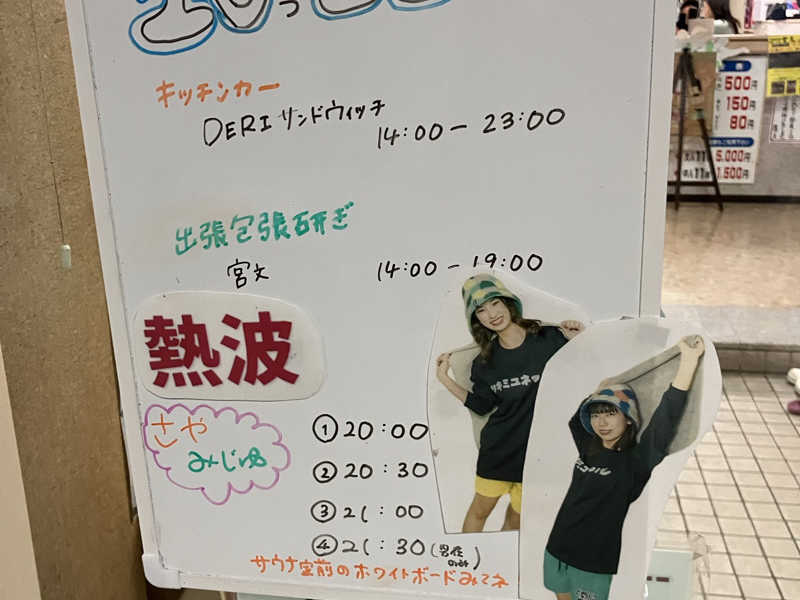 キッチンカー
DERIサンドウィッチ
14:00 - 23:00
出張包張研ぎ
宮文
14:00 - 19:00
熱波
さや
みじゅ
①20:00
②20:30
③21:00
④21:30
サウナ室前のホワイトボードみてネ
500円
150円
80円
5,000円
1,500円